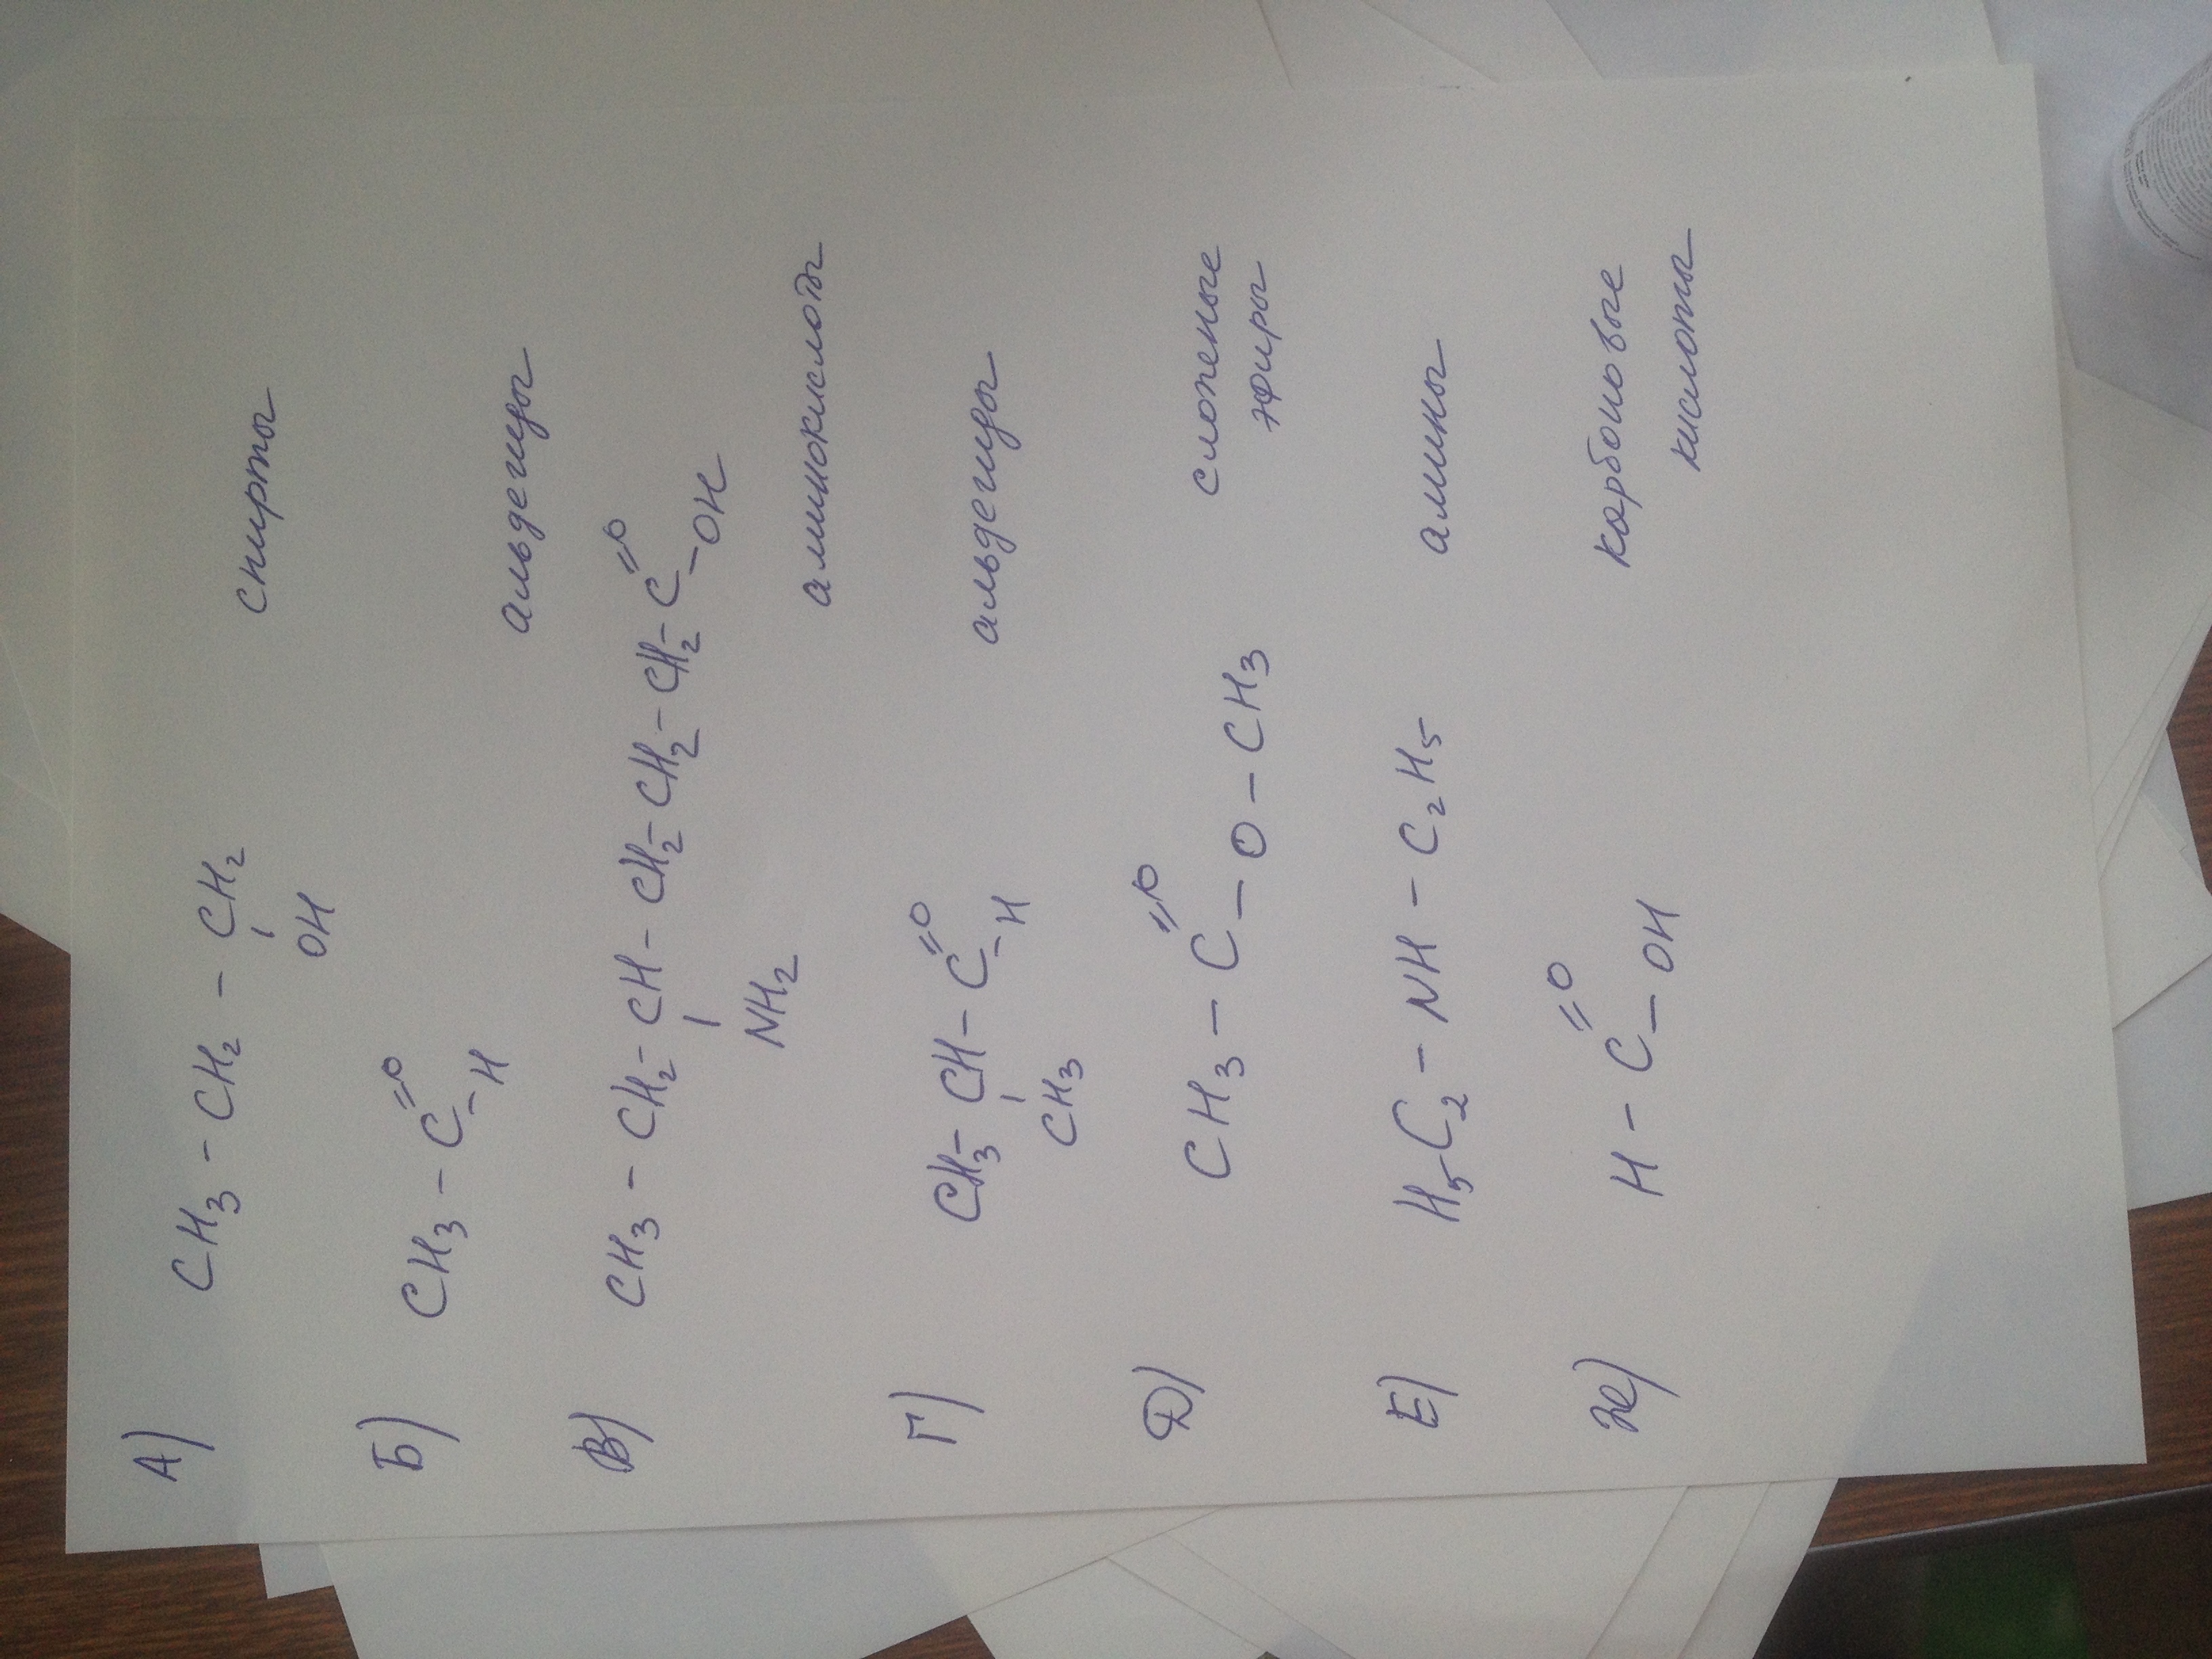 А) CH3 - CH2 - CH2 спирты
OH
Б) CH3 - C =O
- H альдегиды
В) CH3 - CH2 - CH - CH2 - CH2 - CH2 - C =O
NH2 - OH
аминокислоты
Г) CH3 - CH - C =O альдегиды
CH3 - H
Д) CH3 - C =O сложеные
- O - CH3 эфиры
Е) H5C2 - NH - C2H5 амины
Ж) H - C =O карбоновые
- OH кислоты